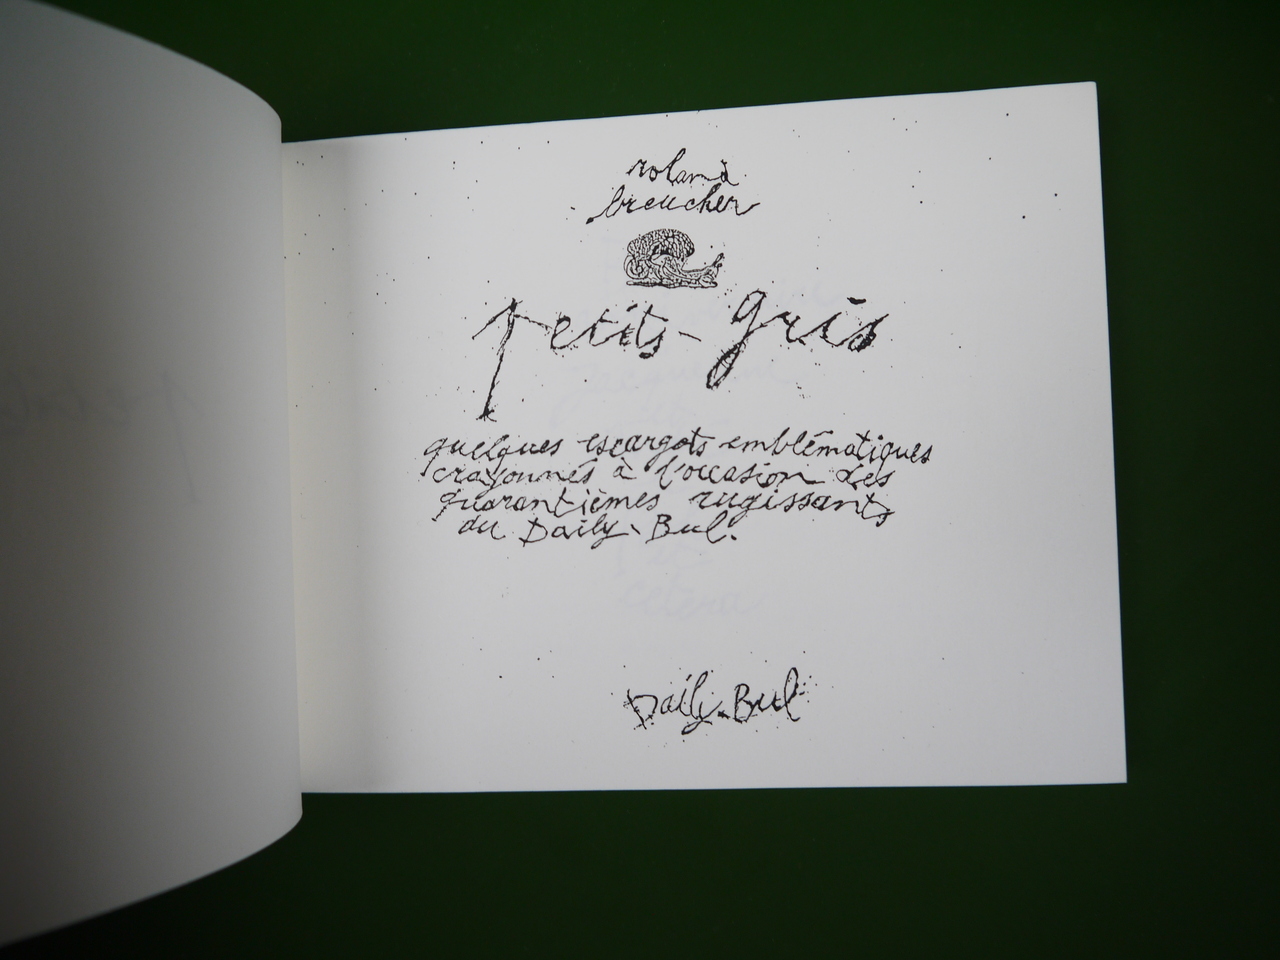 roland
breucker
petits-gris
quelques escargots emblématiques
crayonnés à l'occasion des
quarantièmes rugissants
du Daily-Bul.
Daily-Bul